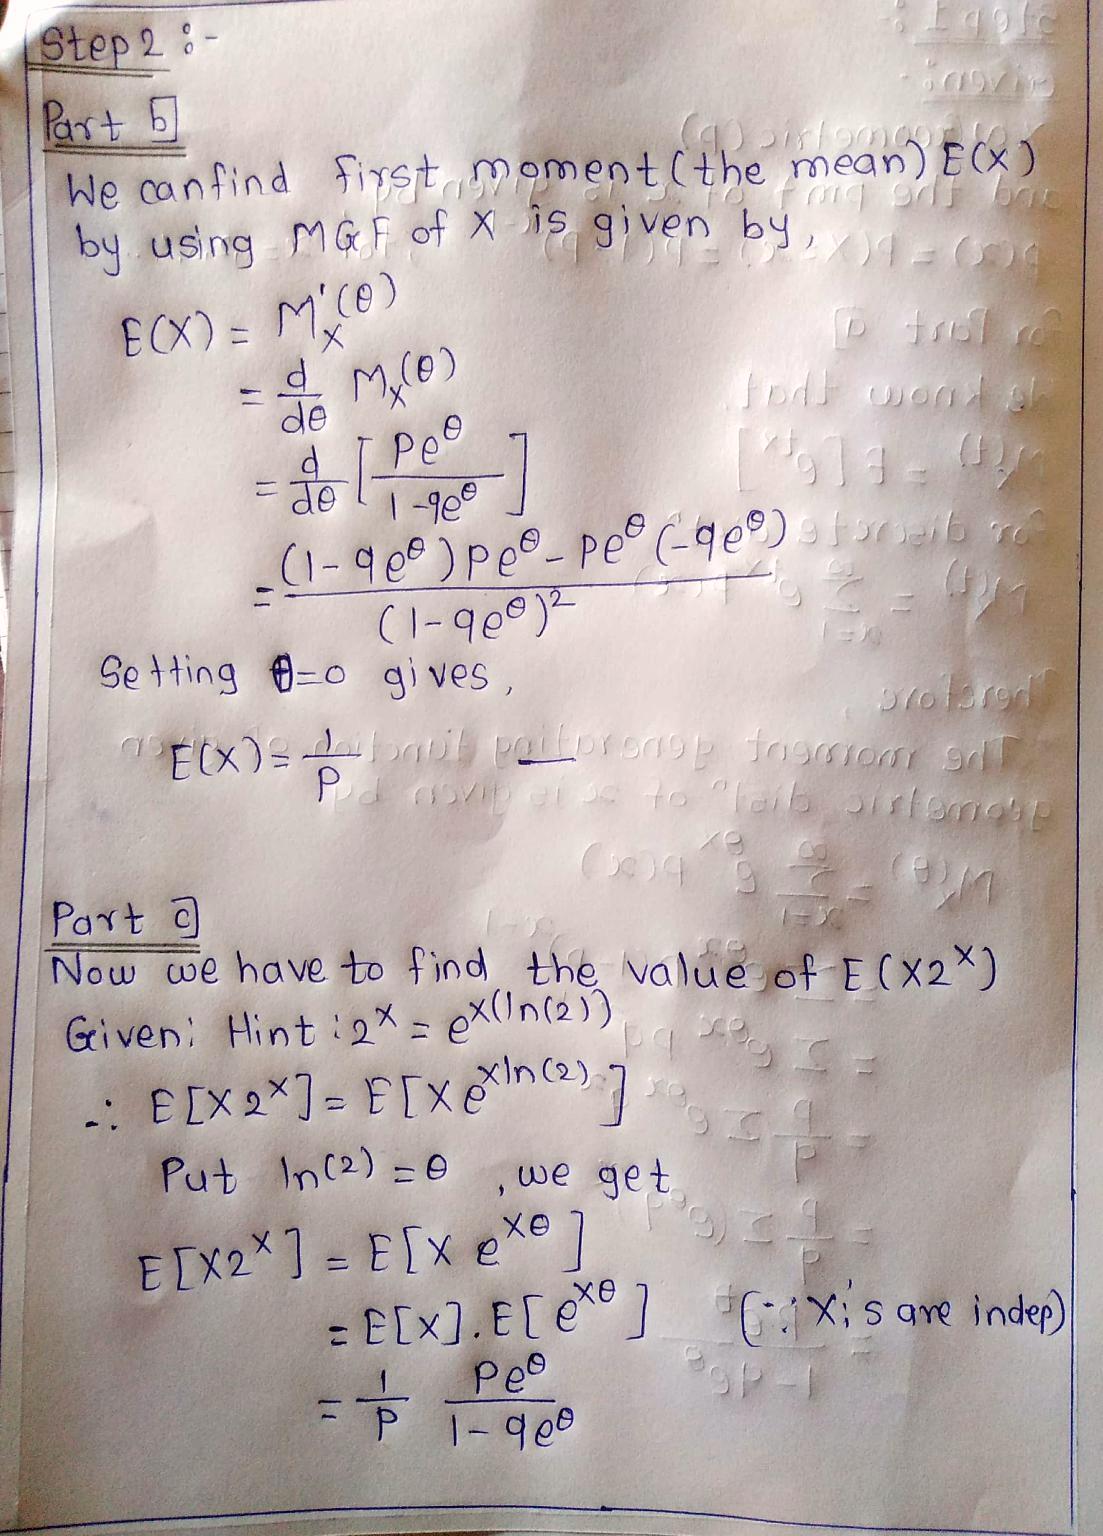 Step 2 :-
Part b]
We can find first moment (the mean) E(X)
by using MGF of X is given by,
E(X) = M'x(θ)
= d/dθ Mx(θ)
= d/dθ [ Pe^θ / 1-qe^θ ]
= (1-qe^θ)pe^θ - pe^θ(-qe^θ) / (1-qe^θ)²
Setting θ=0 gives,
E(X) = 1/P —
Part c]
Now we have to find the value of E(X2^X)
Given: Hint : 2^X = e^X(ln(2))
∴ E[X2^X] = E[X e^Xln(2)]
Put ln(2) = θ , we get
E[X2^X] = E[X e^Xθ]
= E[X].E[e^Xθ] (∵ Xi's are indep)
= 1/P Pe^θ / 1-qe^θ